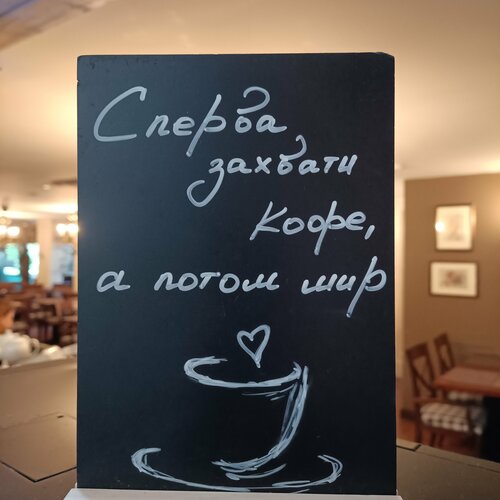 Сперва
захвати
кофе,
а потом мир